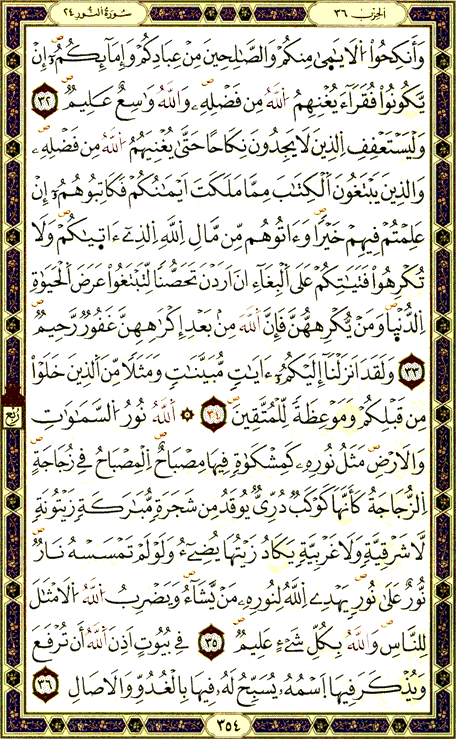 الحِزْب ٣٦
سُورَةُ النُّور ٢٤
وَأَنكِحُواْ الَايَٰمَىٰ مِنكُمْ وَالصَّٰلِحِينَ مِنْ عِبَادِكُمْ وَإِمَآئِكُمُۥٓ إِنْ
يَّكُونُواْ فُقَرَآءَ يُغْنِهِمُ اللَّهُ مِن فَضْلِهِۦ وَاللَّهُ وَٰسِعٌ عَلِيمٌ ٣٢
وَلْيَسْتَعْفِفِ الذِينَ لَا يَجِدُونَ نِكَاحًا حَتَّىٰ يُغْنِيَهُمُ اللَّهُ مِن فَضْلِهِۦ
وَالذِينَ يَبْتَغُونَ الْكِتَٰبَ مِمَّا مَلَكَتَ اَيْمَٰنُكُمْ فَكَاتِبُوهُمُۥٓ إِنْ
عَلِمْتُمْ فِيهِمْ خَيْرًا وَءَاتُوهُم مِّن مَّالِ اللَّهِ الذِےٓ ءَاتَيٰكُمْ وَلَا
تُكْرِهُواْ فَتَيَٰتِكُمْ عَلَى الْبِغَآءِ انَ اَرَدْنَ تَحَصُّنًا لِّتَبْتَغُواْ عَرَضَ الْحَيَوٰةِ
اِلدُّنْيَا وَمَنْ يُّكْرِههُّنَّ فَإِنَّ اَللَّهَ مِنۢ بَعْدِ إِكْرَٰهِهِنَّ غَفُورٌ رَّحِيمٌ
٣٣ وَلَقَدَ اَنزَلْنَآ إِلَيْكُمُۥٓ ءَايَٰتٍ مُّبَيَّنَٰتٍ وَمَثَلًا مِّنَ الذِينَ خَلَوْاْ
مِن قَبْلِكُمْ وَمَوْعِظَةً لِّلْمُتَّقِينَ ٣٤ ۞ اَللَّهُ نُورُ السَّمَٰوَٰتِ
رُبُع
وَالَارْضِ مَثَلُ نُورِهِۦ كَمِشْكَوٰةٍ فِيهَا مِصْبَاحٌ اِلْمِصْبَاحُ فِي زُجَاجَةٍ
اِلزُّجَاجَةُ كَأَنَّهَا كَوْكَبٌ دُرِّيٌّ يُوقَدُ مِن شَجَرَةٍ مُّبَٰرَكَةٍ زَيْتُونَةٍ
لَّا شَرْقِيَّةٍ وَلَا غَرْبِيَّةٍ يَكَادُ زَيْتُهَا يُضِےٓءُ وَلَوْ لَمْ تَمْسَسْهُ نَارٌ
نُّورٌ عَلَىٰ نُورٍ يَهْدِے اِللَّهُ لِنُورِهِۦ مَنْ يَّشَآءُ وَيَضْرِبُ اللَّهُ الَامْثَٰلَ
لِلنَّاسِ وَاللَّهُ بِكُلِّ شَےْءٍ عَلِيمٌ ٣٥ فِي بُيُوتٍ اَذِنَ اَللَّهُ أَن تُرْفَعَ
وَيُذْكَرَ فِيهَا اَسْمُهُۥ يُسَبِّحُ لَهُۥ فِيهَا بِالْغُدُوِّ وَالَاصَالِ ٣٦
٣٥٤